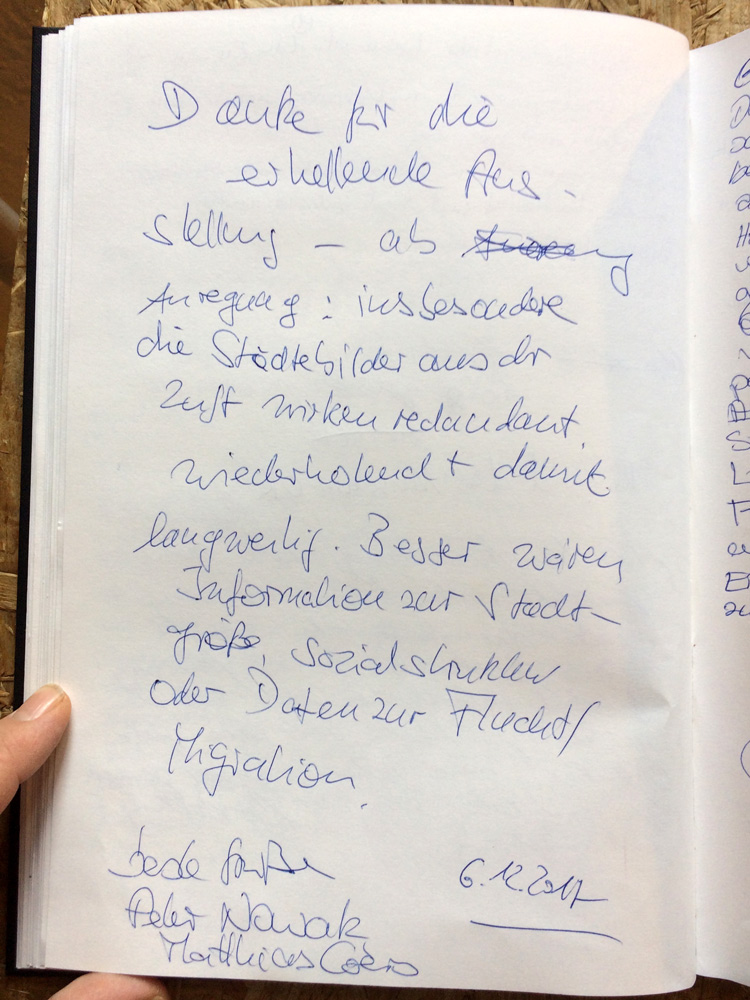 Danke für die
erhellende Aus-
stellung – als
Anregung: insbesondere
die Städtebilder aus dr
Luft wirken redundant,
wiederholend + damit
langweilig. Besser wären
Information zur Stadt-
größe, Sozialstruktur
oder Daten zur Flucht/
Migration.
beste Grüße
6.12.2017
Peter Nowak
Matthias